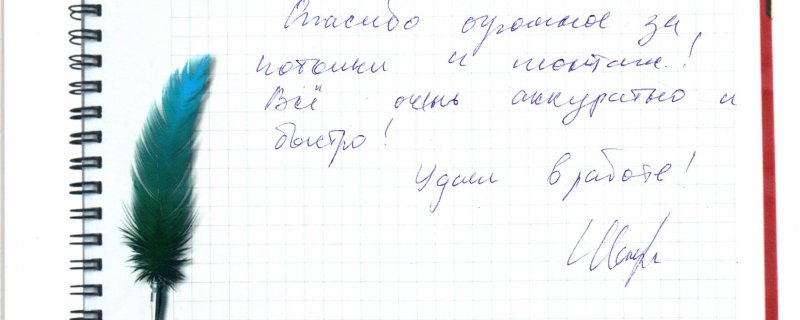 Спасибо огромное за
потолки и монтаж!
Всё очень аккуратно и
быстро!
Удачи в работе!